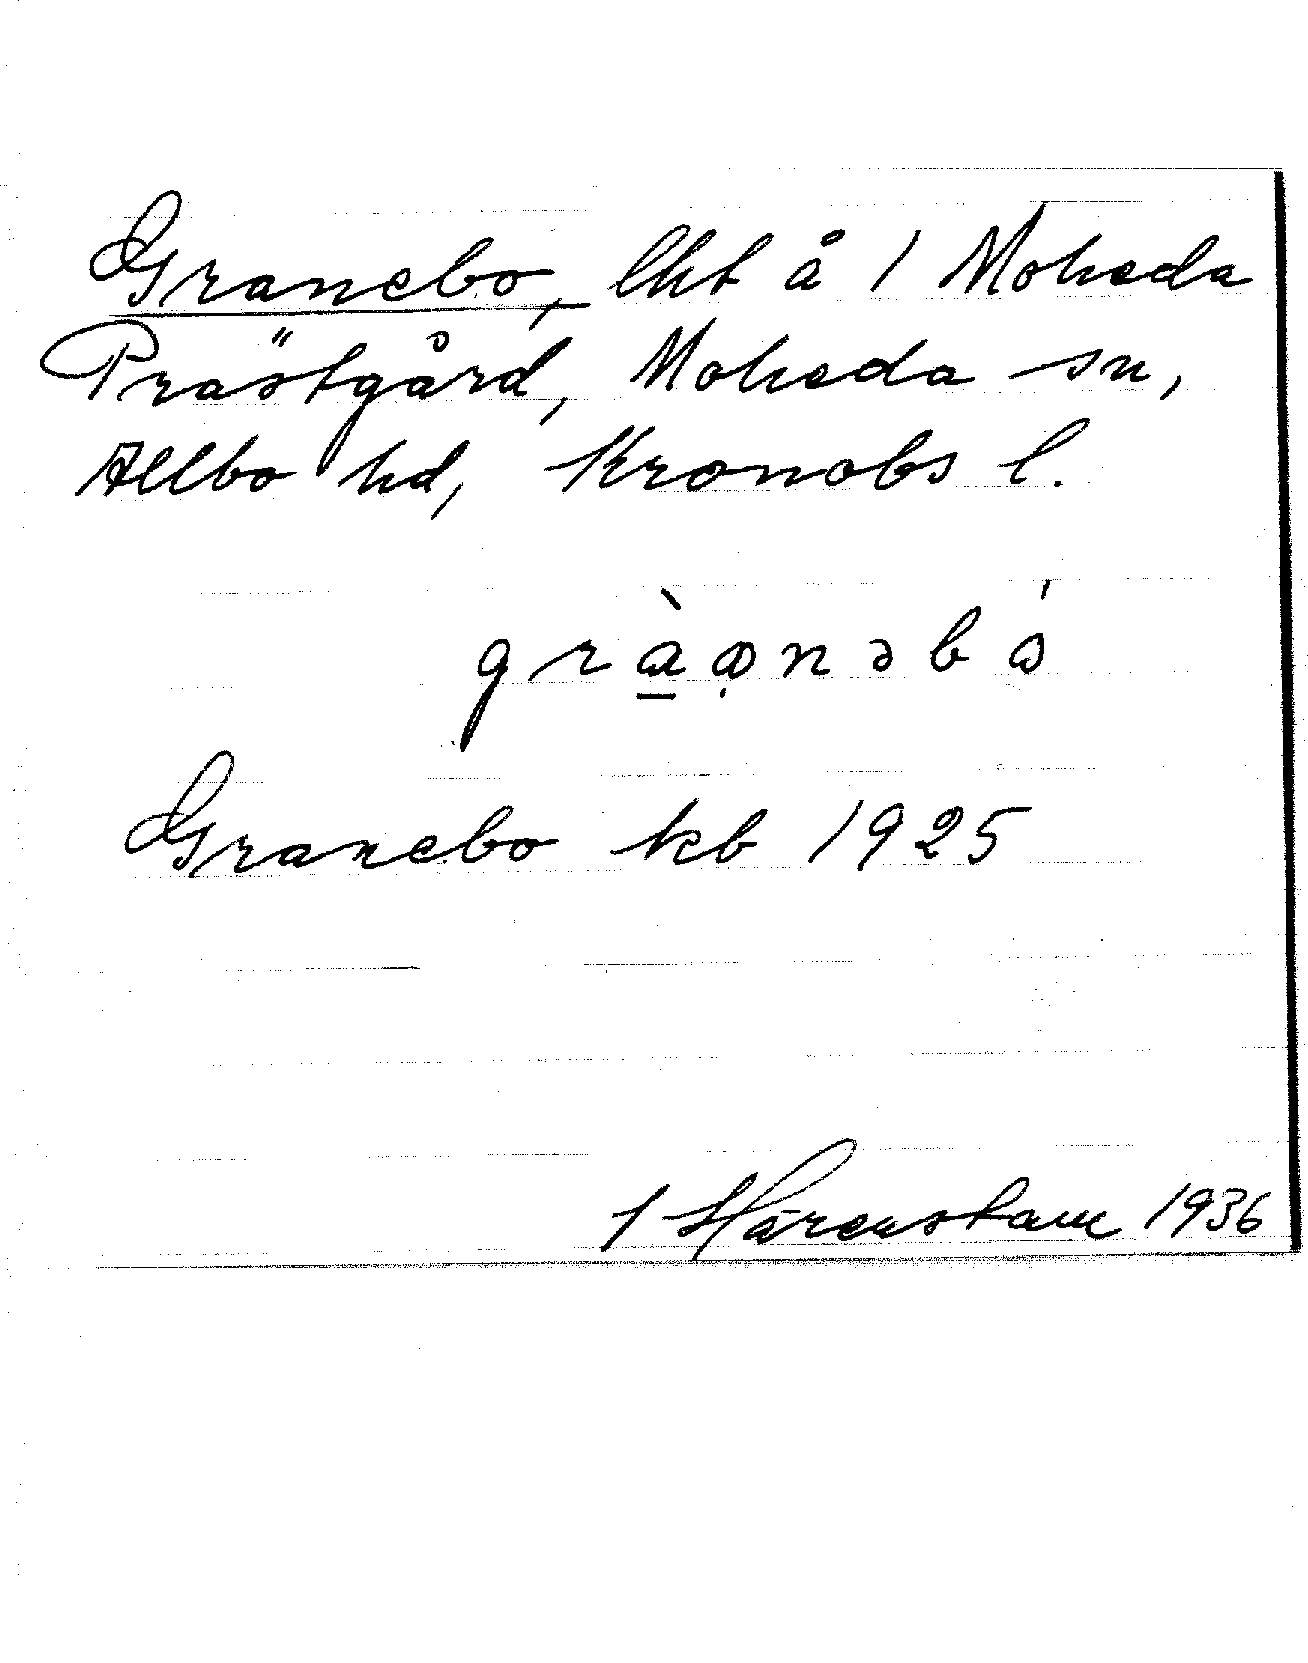 Granebo, lht å 1 Moheda
Prästgård, Moheda sn,
Allbo hd, Kronobs l.
gràọnəbó
Granebo kb 1925
I Härenstam 1936